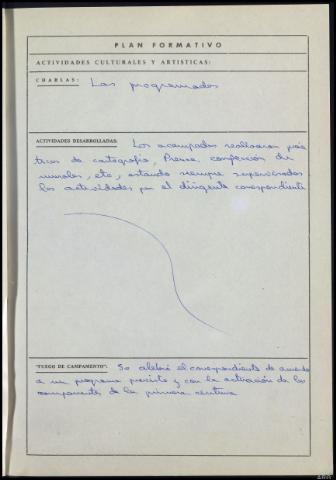 PLAN FORMATIVO
ACTIVIDADES CULTURALES Y ARTISTICAS:
CHARLAS: Las programadas
ACTIVIDADES DESARROLLADAS: Los acampados realizaron prác
ticas de cartografía, Prensa, confección de
murales, etc, estando siempre supervisados
las actividades por el dirigente correspondiente
"FUEGO DE CAMPAMENTO": Se celebró el correspondiente de acuerdo
a un programa previsto y con la actuación de los
componentes de la primera centuria